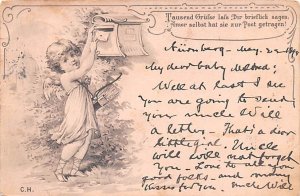 Tausend Grüsse lass Dir brieflich sagen,
Amor selbst hat sie zur Post getragen!
Nürnberg - May. 22
My dear baby
Well at last I see
you are going to send
your uncle Will
a letter - That's a dear
little girl. Uncle
will well not forget
you. Love to all you
good folks - and many
kisses for you. Uncle Will
C.H.